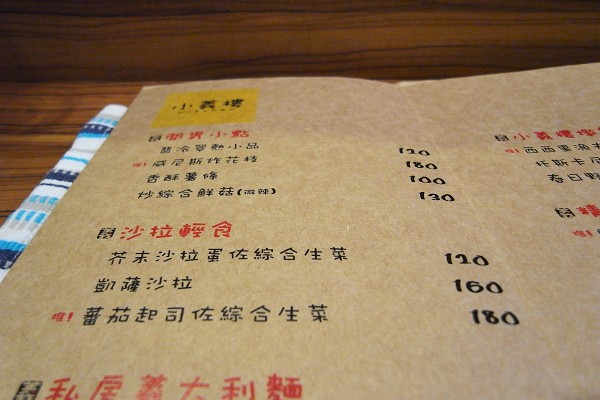 小義樓
開胃小點
翡冷翠熱小品 120
推!威尼斯炸花枝 180
香酥薯條 100
炒綜合鮮菇(微辣) 130
沙拉輕食
芥末沙拉蛋佐綜合生菜 120
凱薩沙拉 160
推!蕃茄起司佐綜合生菜 180
私房義大利麵
小義樓
推!西西里漁
托斯卡尼
春日野
精